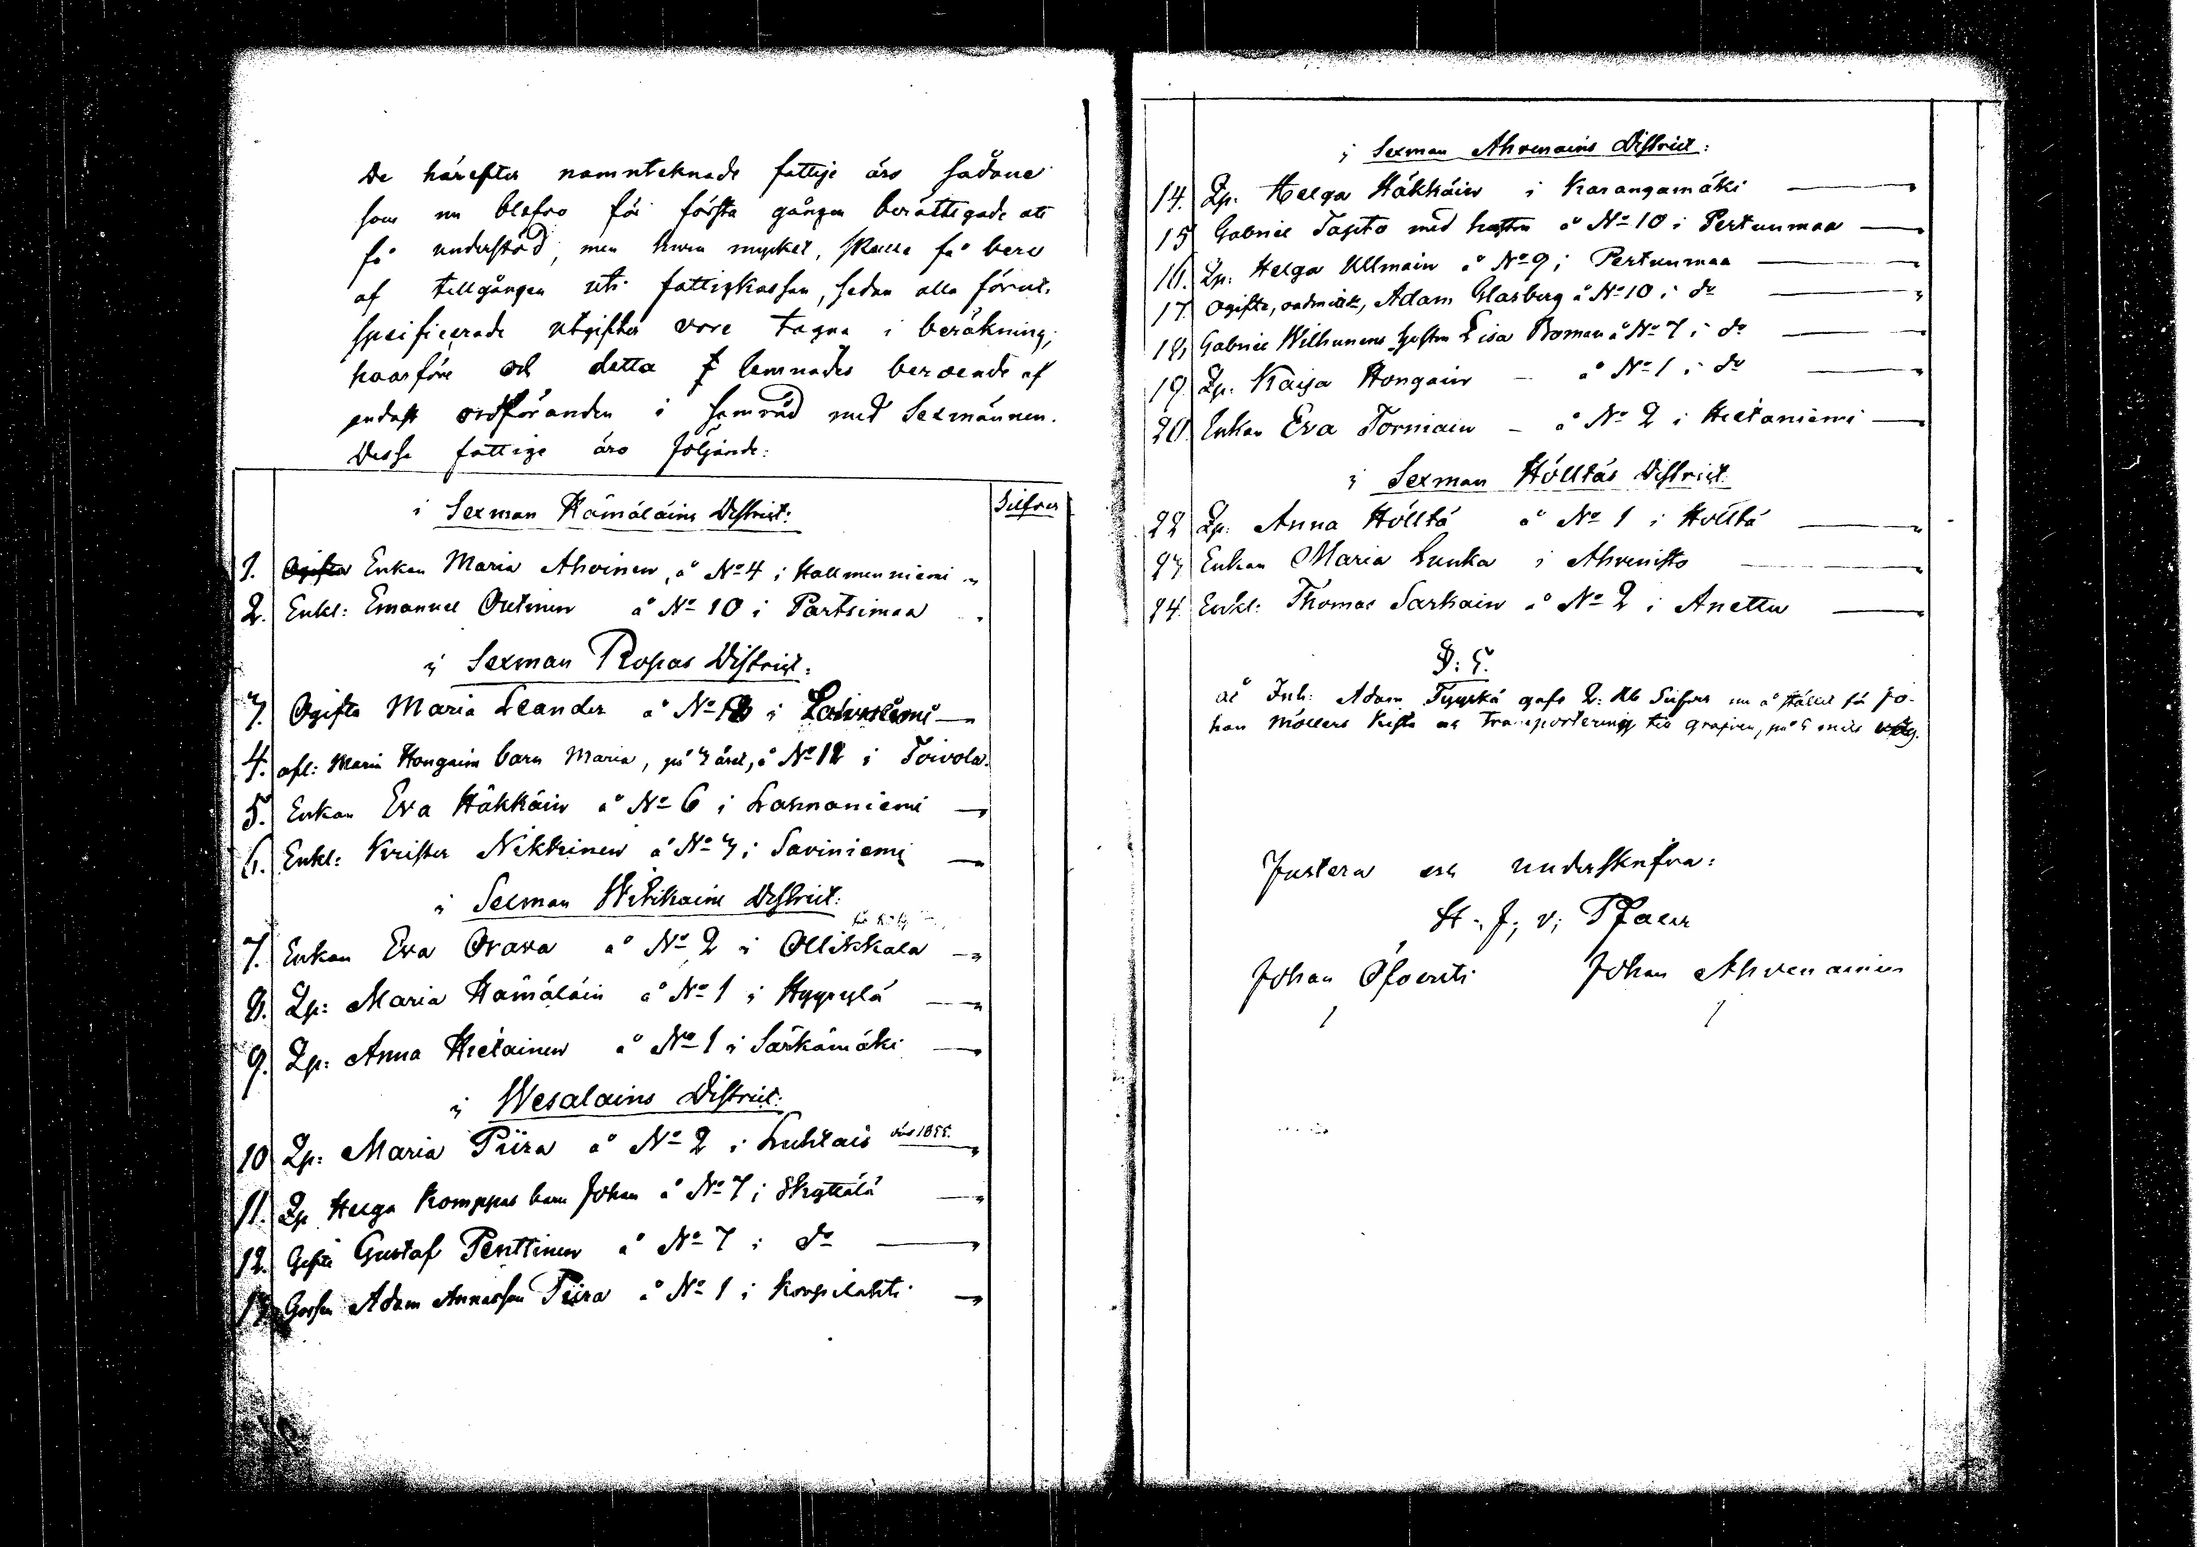 De härefter namnteknade fattige äro sådane
som nu blefvo för första gången berättigade att
få understöd, men huru mycket, skulle få bero
af tillgången uti fattigkassan, sedan alla förut.
specificerade utgifter vore tagna i beräkning;
hvarföre och detta lemnades beroende af
endast ordföranden i samråd med Sexmännen.
Desse fattige äro följande:
i Sexman Hämäläins District: Silfver
1. Ogifta Enkan Maria Ahvinen, å No 4 i Hallmenniemi "
2. Enkl: Emanuel Outinen å No 10 i Partsimaa "
i Sexman Ropas District:
3. Ogifta Maria Leander å No 12 i
4. afl: Maria Hongains barn Maria, på 3 året, å No 12 i Toivola.
5. Enkan Eva Häkkäin å No 6 i Lahnaniemi — "
6. Enkl: Krister Nikkinen å No 3 i Saviniemi — "
i Sexman Witikains District:
7. Enkan Eva Orava å No 2 i Ollikkala — "
8. Qp: Maria Hämäläin å No 1 i Hyyrylä — "
9. Qp: Anna Hietainen å No 1 i Särkämäki — "
i Wesalains District:
10 Qp: Maria Piira å No 2 i Luhtais 1855. "
11. Qp Helga Komppas barn Johan å No 7 i Skyttälä — "
12. Gifta Gustaf Penttinen å No 7 i do — "
13. Gossen Adam Annasson Piira å No 1 i Korpilahti — "
i Sexman Ahvenains District:
14. Qp: Helga Häkkäin i Karangamäki — "
15 Gabriel Tapito med hustru å No 10 i Pertunmaa — "
16. Qp: Helga Ullmain å No 9 i Pertunmaa — "
17. Ogifte, Adam Glasberg å No 10 i do — "
18. Gabriel Wilhunens hustru Lisa Roman å No 7 i do — "
19. Qp: Kaisa Hongain – å No 1 i do — "
20. Enkan Eva Torniain – å No 2 i Hietaniemi — "
i Sexman Hölltäs District:
22 Qp: Anna Hölltä å No 1 i Hölltä — "
23 Enkan Maria Lunka i Ahvenisto — "
24. Enkl: Thomas Sarkain å No 2 i Anettu — "
§: 5.
åt Inh: Adam Tyyskä gafs 2: Rb Silfver nu å stället för Jo-
han Möllers kista och transportering till grafven, på 5 mils väg.
Justera och underskrifva:
H. J. v; Pfaler
Johan Ofverti Johan Ahvenainen